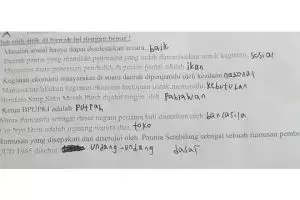 A
Isilah titik-titik di bawah ini dengan benar !
Masalah sosial hanya dapat diselesaikan secara.. baik
Daerah pantai yang memiliki panorama yang indah dimanfaatkan untuk kegiatan. sosial
mata pencarian penduduk di pesisir pantai adalah ikan
Kegiatan ekonomi masyarakat di suatu daerah dipengaruhi oleh keadaan nasional
Manusia melakukan kegiatan ekonomi bertujuan untuk memenuhi kebutuhan
Bendera Sang Saka Merah Putih dijahit tangan oleh. Pahlawan
Ketua BPUPKI adalah Putrah
pancasila sebagai dasar negara pertama kali diusulkan oleh bancasila
Cut Nyn Dien adalah seorang wanita dari toko
Rumusan yang disepakati dan disetujui oleh Panitia Sembilang sebagai sebuah rumusan pembu
UUD 1945 disebut undang-undang dasar